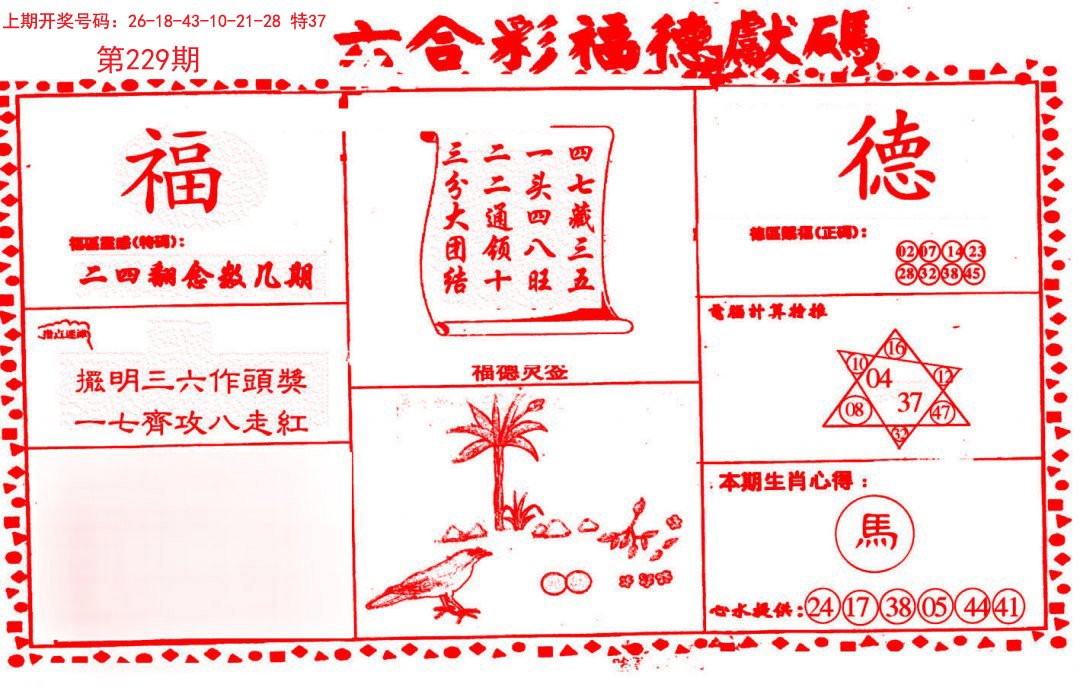 上期开奖号码：26-18-43-10-21-28 特37
第229期
六合彩福德獻碼
福
福區靈感(特碼)：
二四翻念数几期
指点迷津
攏明三六作頭獎
一七齊攻八走紅
四七藏三五
一头四八旺
二二通领十
三分大团结
福德灵签
德
德區賜福(正碼)：
02 07 14 23
28 32 38 45
電腦計算特推
16
10 12
04
37
08 47
32
本期生肖心得：
馬
心水提供：24 17 38 05 44 41